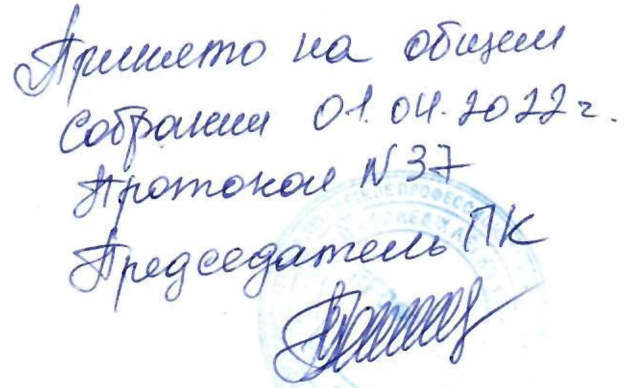 Принято на общем
собрании 01.04.2022г.
Протокол N 37
Председатель ПК